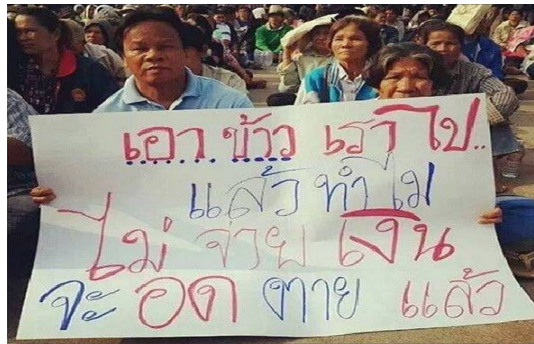 เอา ข้าว เรา ไป..
แล้ว ทำไม
ไม่ จ่าย เงิน
จะ อด ตาย แล้ว